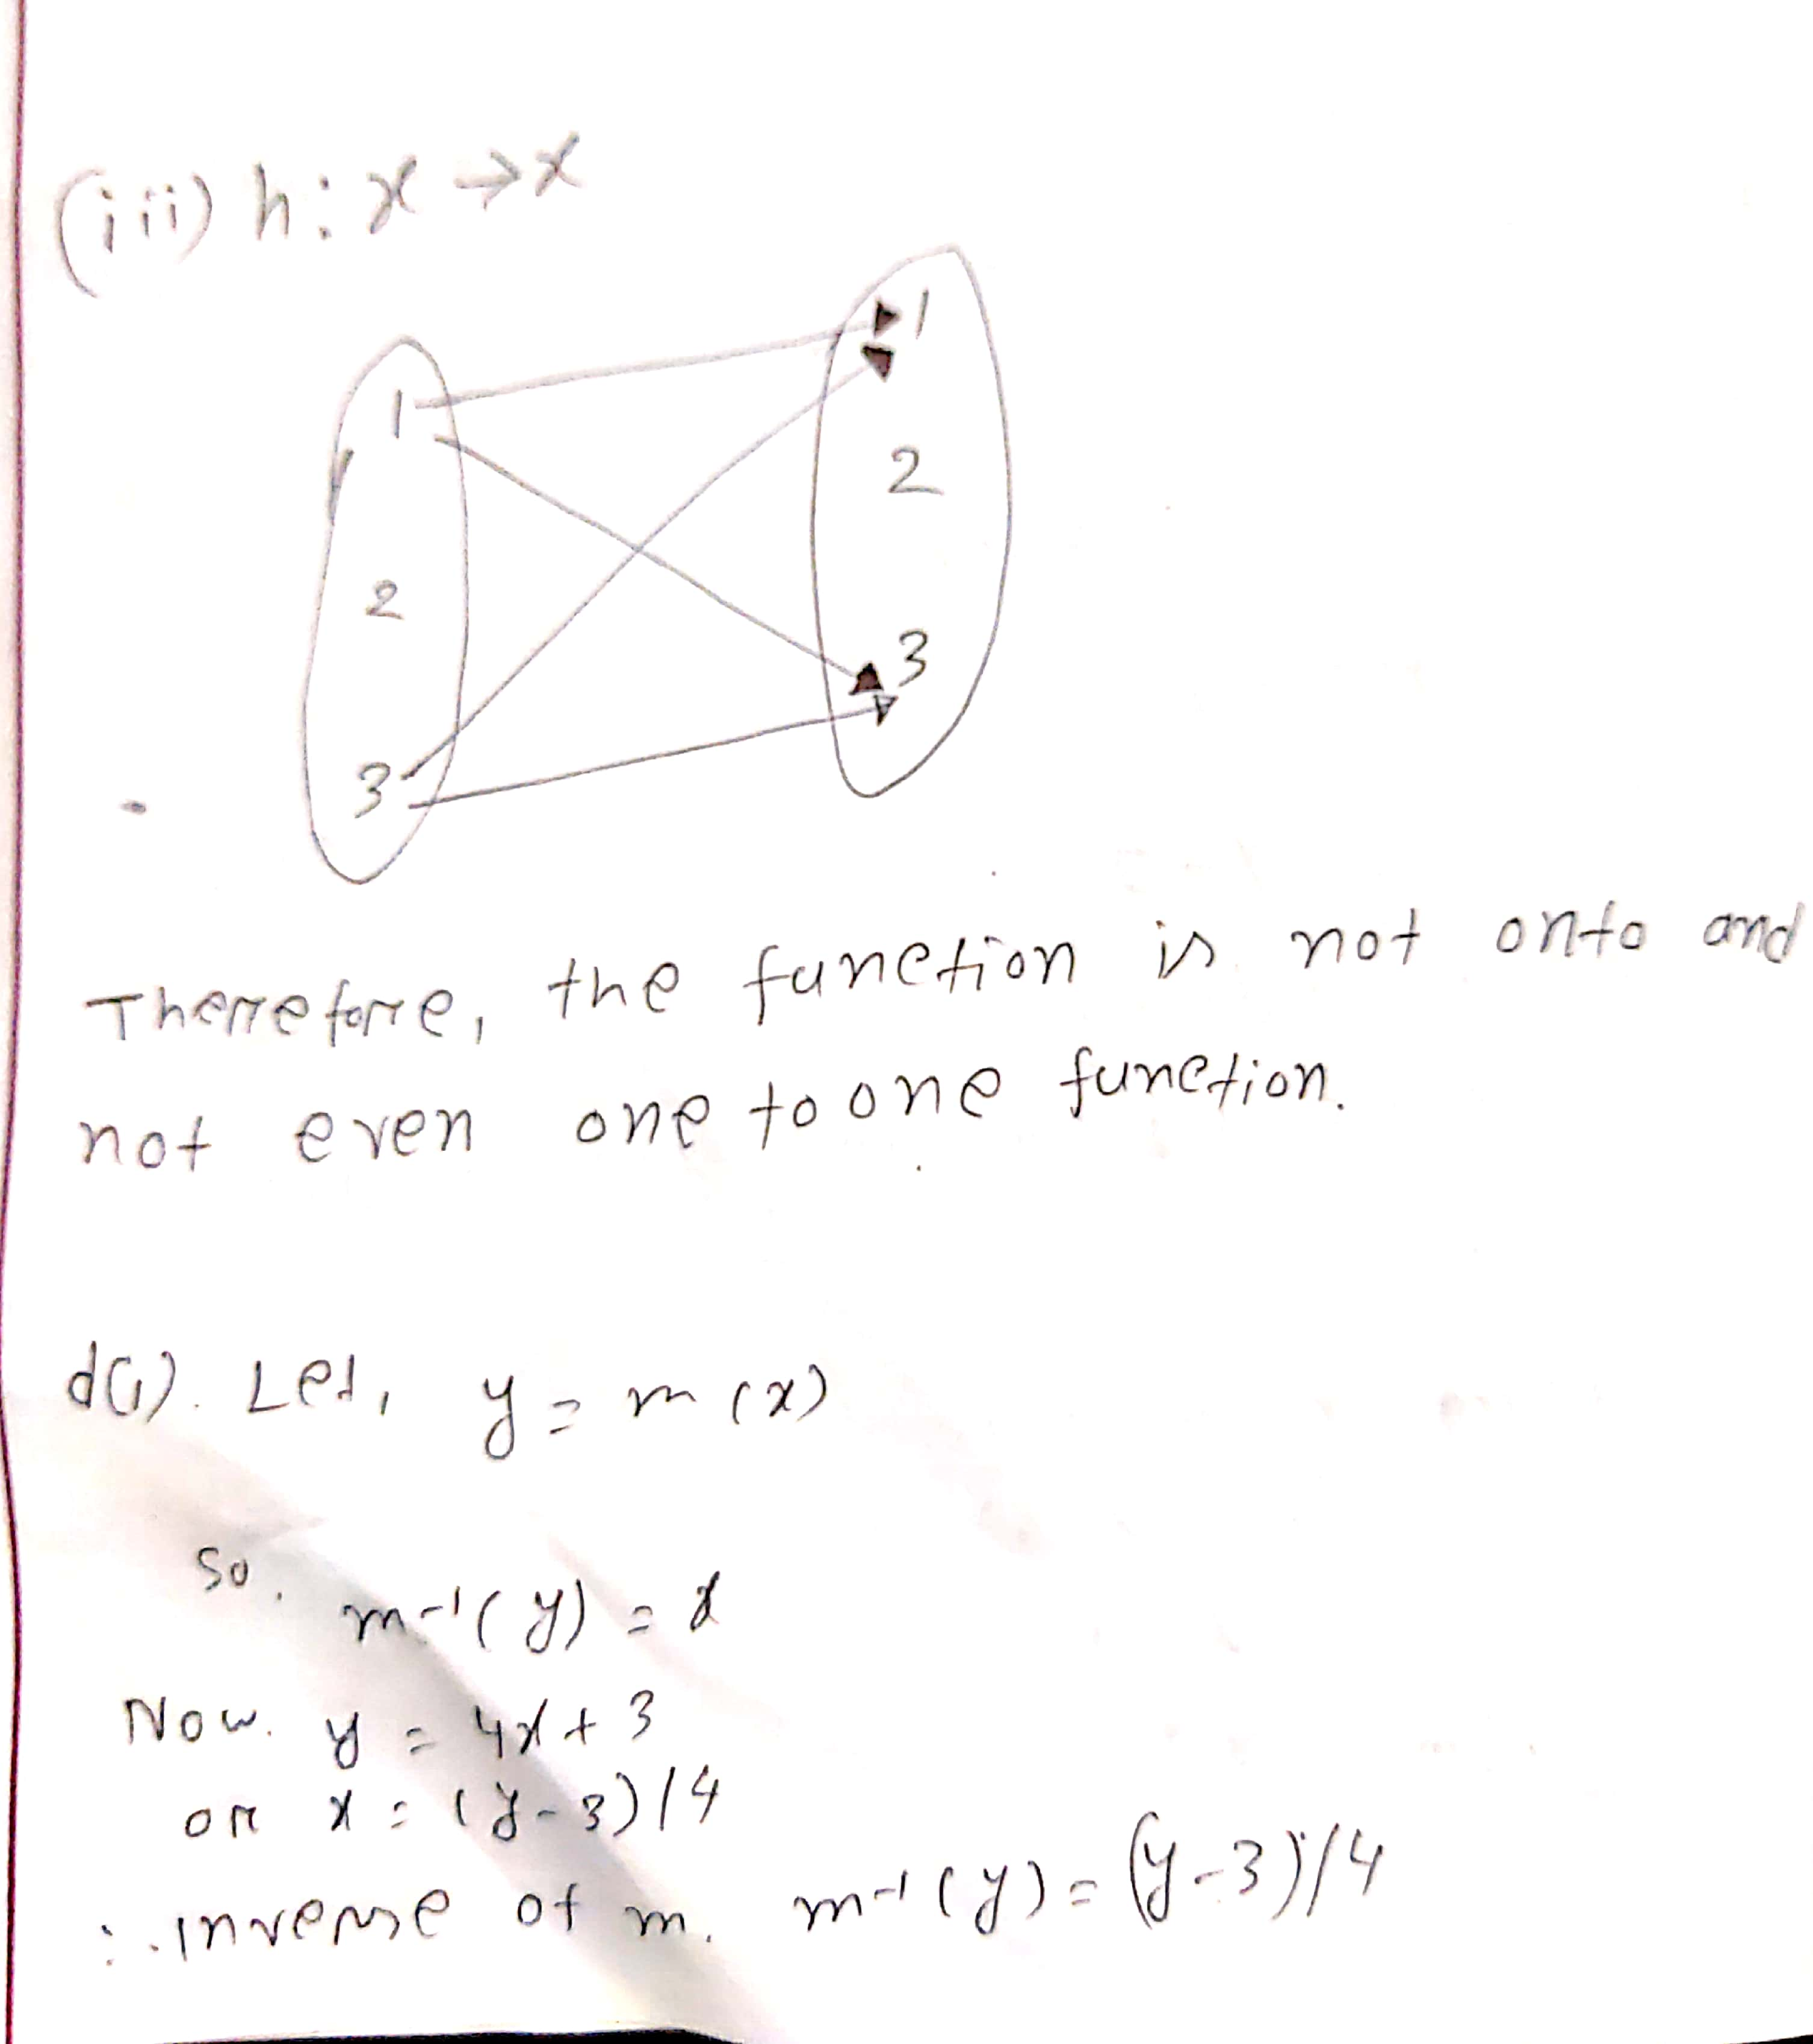 (iii) h: x → x
1
1
2
2
3
3
Therefore, the function is not onto and
not even one to one function.
d(i). Let, y = m(x)
So, m⁻¹(y) = x
Now. y = 4x + 3
or x = (y-3)/4
∴ inverse of m, m⁻¹(y) = (y-3)/4